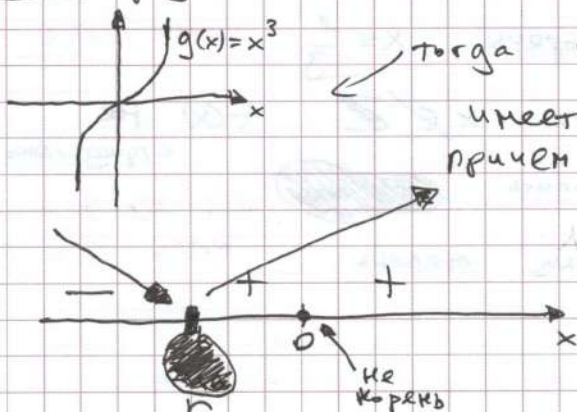 g(x) = x³
x
тогда
имеет
причем
− + +
0
x
не
корень